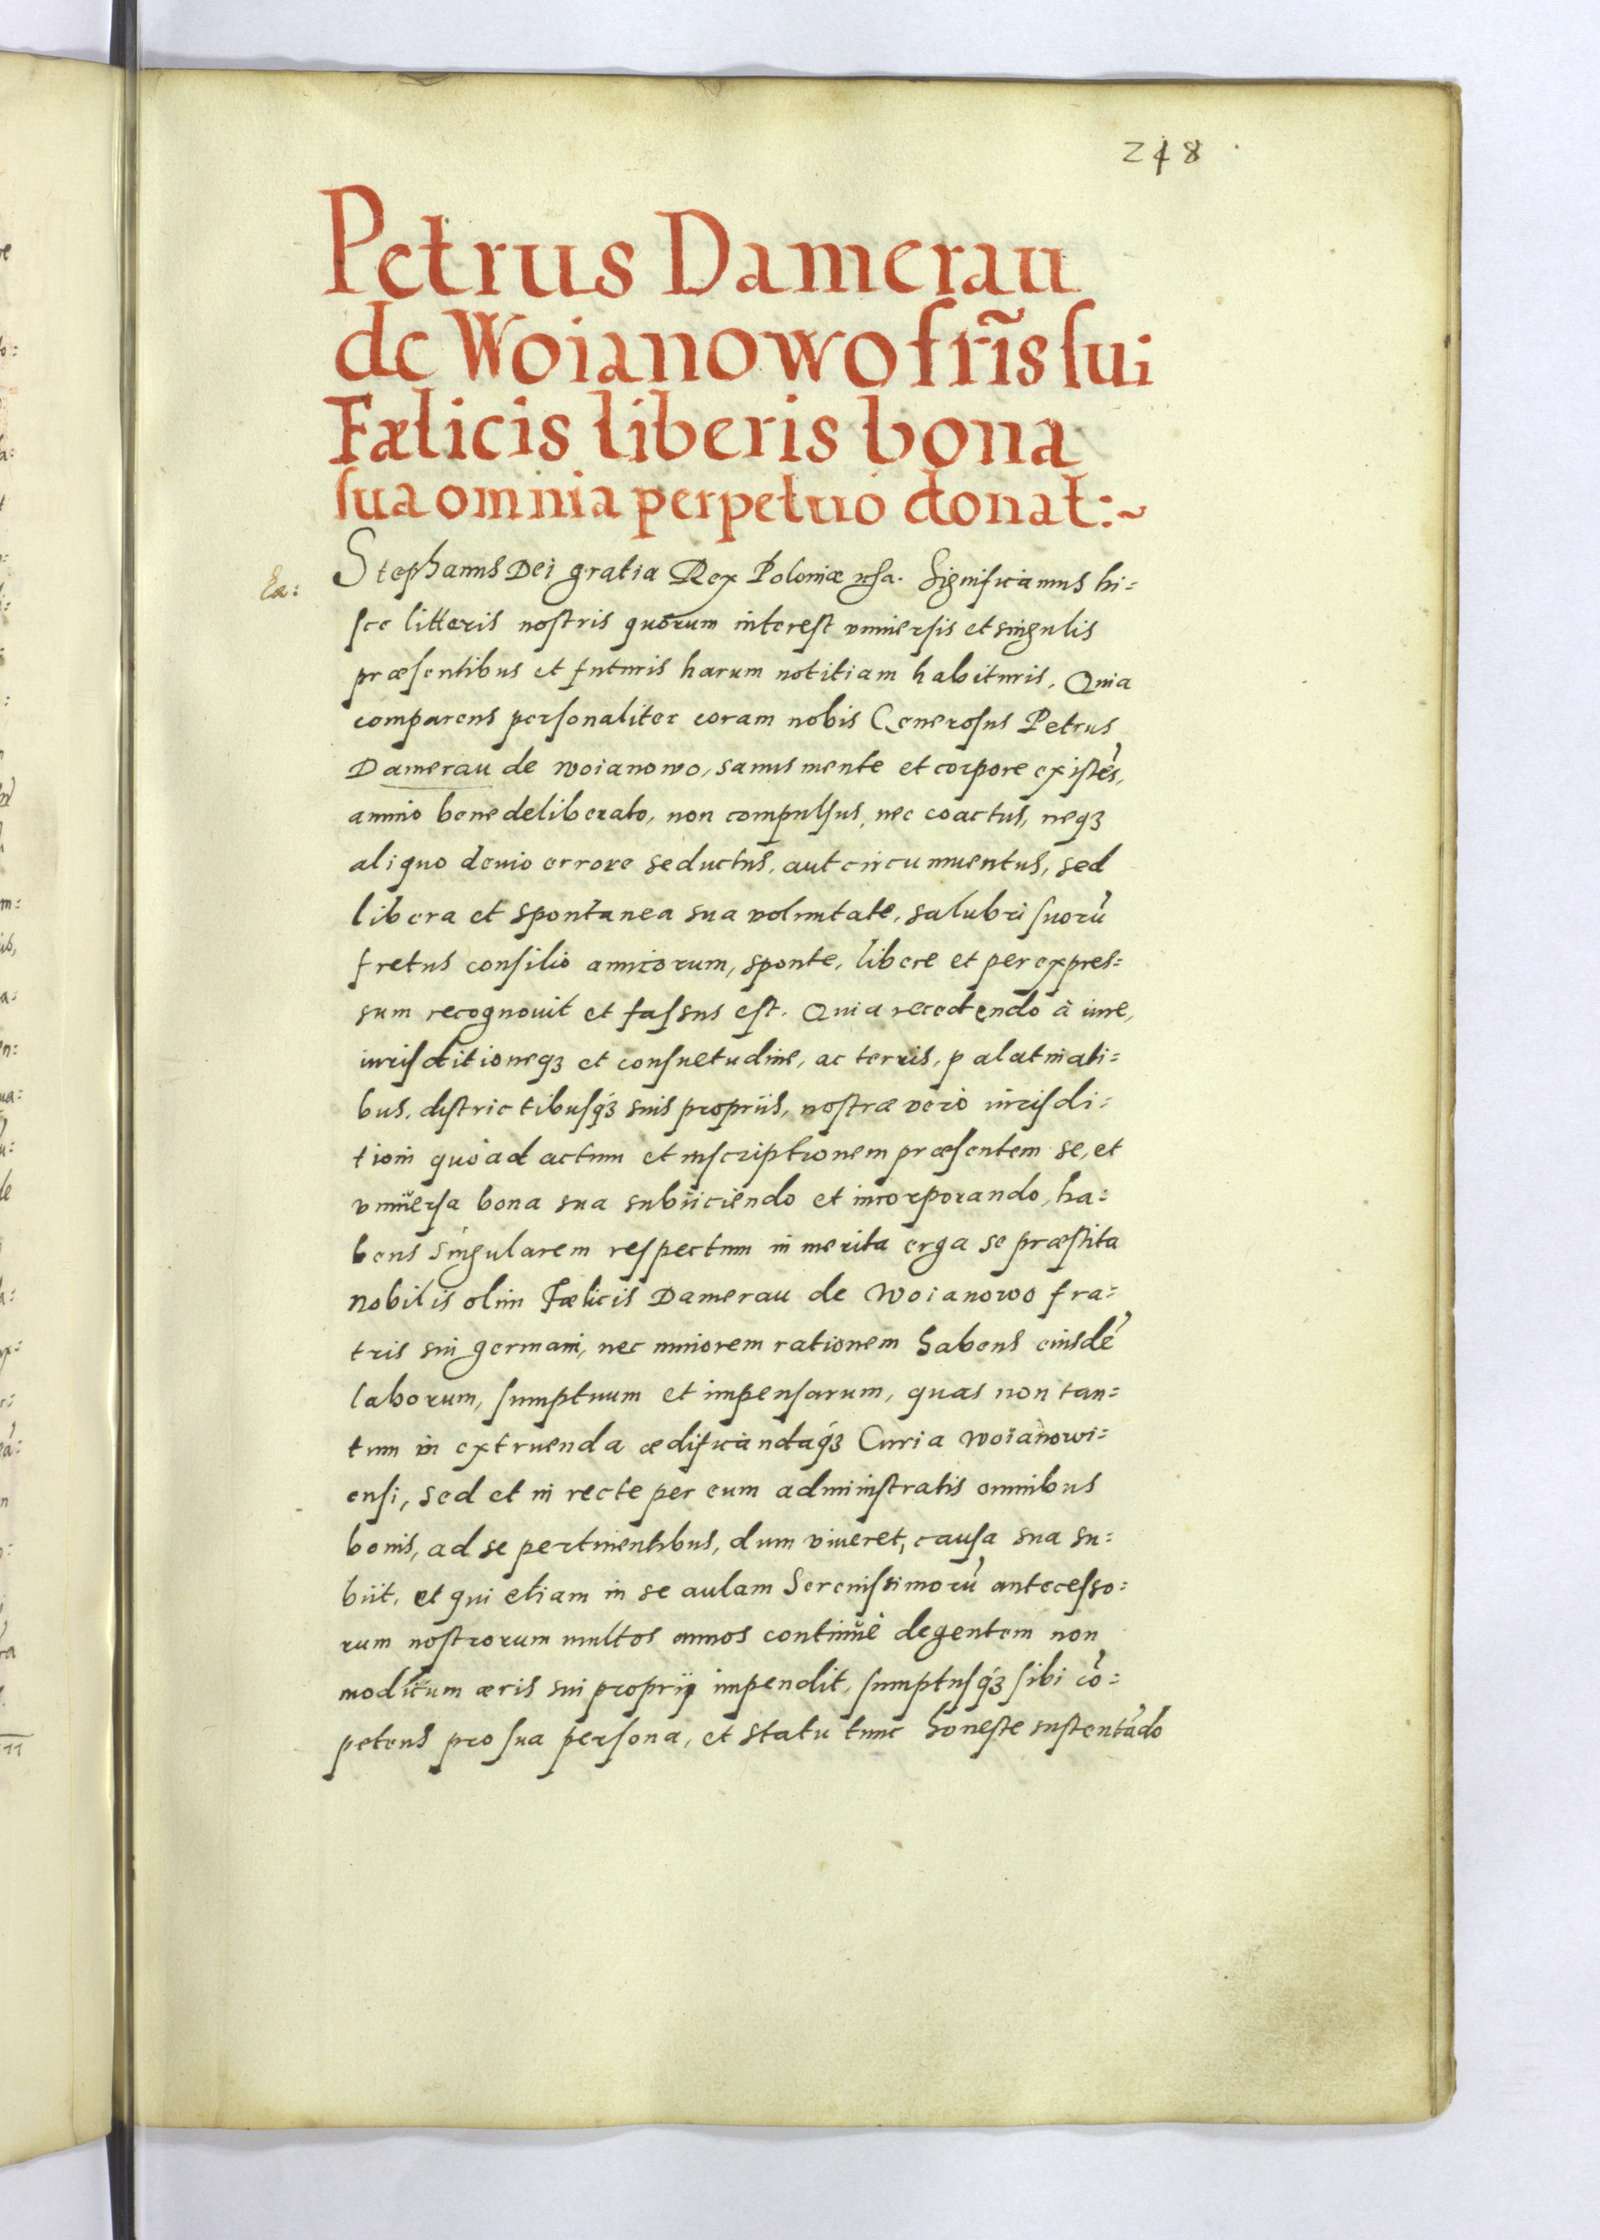 248
Petrus Damerau
de Woianowo fr̃is sui
Fælicis liberis bona
sua omnia perpetuo donat:~
Ex:
Stephanus Dei gratia Rex Poloniæ Significamus hi=
sce litteris nostris quorum interest vniuersis et singulis
præsentibus et futuris harum notitiam habituris. Quia
comparens personaliter coram nobis Generosus Petrus
Damerau de Woianowo, sanus mente et corpore existẽs,
animo bene deliberato, non compulsus, nec coactus, neqȝ
aliquo deuio errore seductus, aut circumuentus, sed
libera et spontanea sua voluntate, salubri suorũ
fretus consilio amicorum, sponte, libere et per expres=
sum recognouit et fassus est. Quia recedendo à iure,
iurisditioneqȝ et consuetudine, ac terris, palatinati=
bus, districtibusqȝ suis propriis, nostræ verò iurisdi=
tioni quoad actum et inscriptionem præsentem se, et
vniuersa bona sua subiiciendo et incorporando, ha=
bens singularem respectum in merita erga se præstita
Nobilis olim Fælicis Damerau de Woianowo fra=
tris sui germani, nec minorem rationem habens eiusdẽ
laborum, sumptuum et impensarum, quas non tan=
tum in extruenda ædificandaqȝ Curia Woianowi=
ensi, sed et in recte per eum administratis omnibus
bonis, ad se pertinentibus, dum viueret, causa sua su=
biit, et qui etiam in se aulam Serenissimorũ antecesso=
rum nostrorum multos annos continuè degentem non
modicum æris sui proprij impendit, sumptusqȝ sibi cõ=
petens pro sua persona, et statu tunc honeste sustentãdo